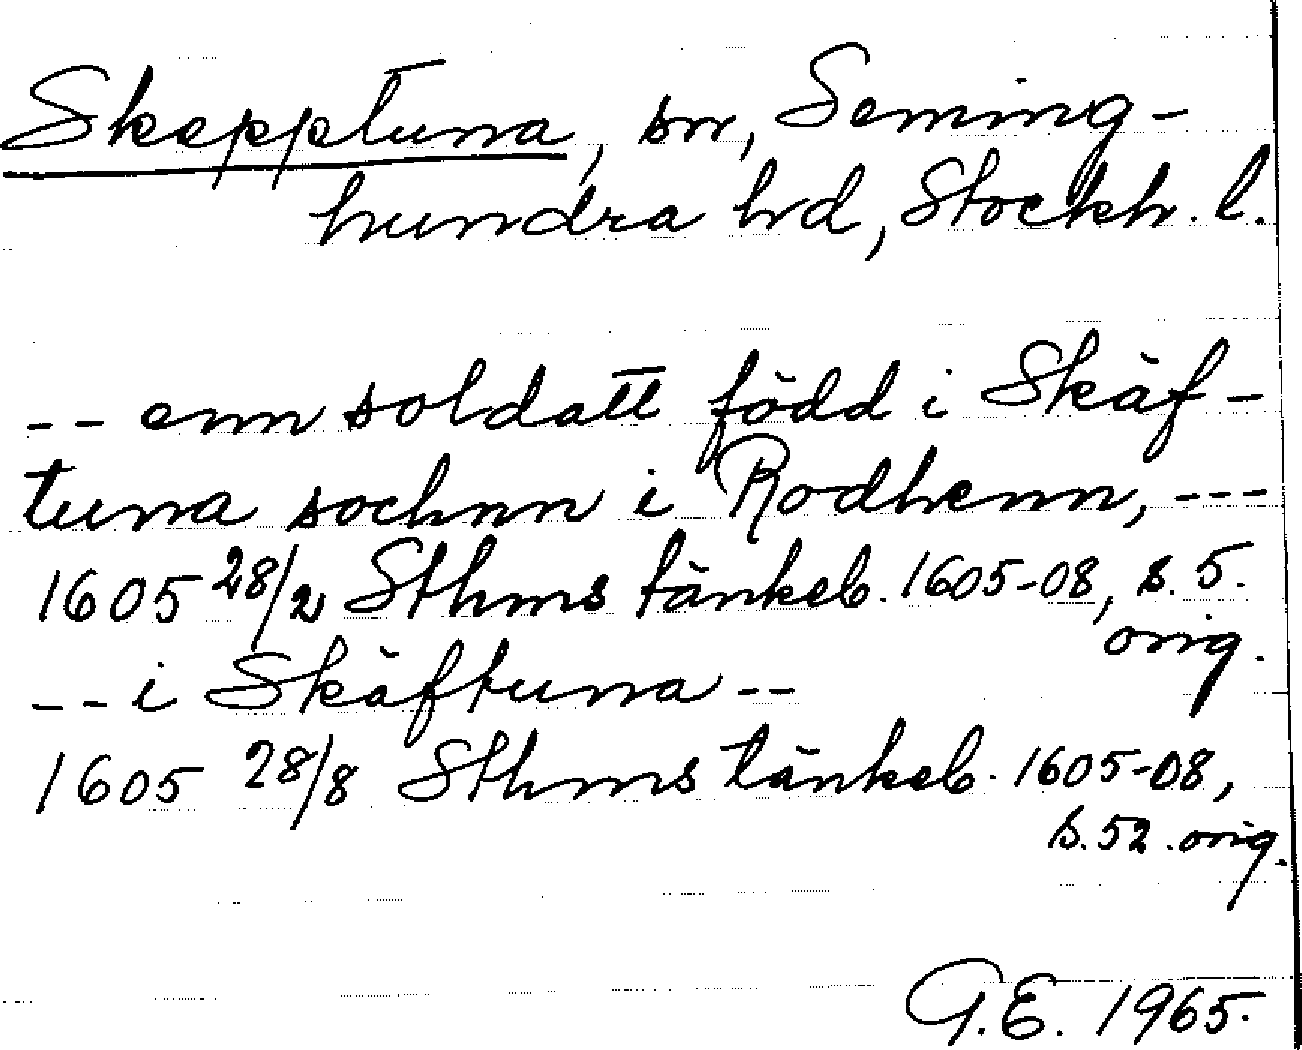 Skepptuna, sn, Seming-
hundra hd, Stockh. l.
-- enn soldatt född i Skäf-
tuna sochnn i Rodhenn, ---
1605 28/2 Sthms tänkeb. 1605-08, s. 5.
orig.
-- i Skäftuna --
1605 28/8 Sthms tänkeb. 1605-08,
s. 52. orig.
G.E. 1965.